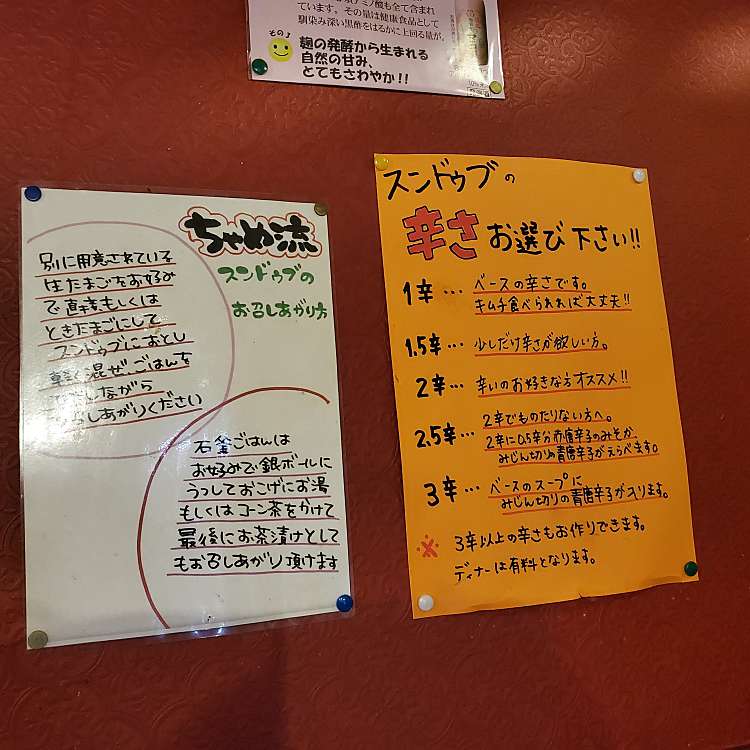 ミノ酸も全て含まれ
ています。その量は健康食品として
馴染み深い黒酢をはるかに上回る量が。
その♪
麹の発酵から生まれる
自然の甘み、
とてもさわやか!!
ちゃめ流
スンドゥブの
お召しあがり方
別に用意されている
生たまごをお好み
で直接もしくは
ときたまごにして
スンドゥブにおとし
軽く混ぜ、ごはんを
しながら
しあがりください
石釜ごはんは
お好みで銀ボールに
うつしておこげにお湯
もしくはコーン茶をかけて
最後にお茶漬けとして
もお召しあがり頂けます
スンドゥブの
辛さお選び下さい!!
1辛… ベースの辛さです。
キムチ食べられれば大丈夫!!
1.5辛… 少しだけ辛さが欲しい方。
2辛… 辛いのお好きな方オススメ!!
2.5辛… 2辛でものたりない方へ。
2辛に0.5辛分赤唐辛子のみそか、
みじん切りの青唐辛子がえらべます。
3辛… ベースのスープに
みじん切りの青唐辛子が入ります。
※ 3辛以上の辛さもお作りできます。
ディナーは有料となります。